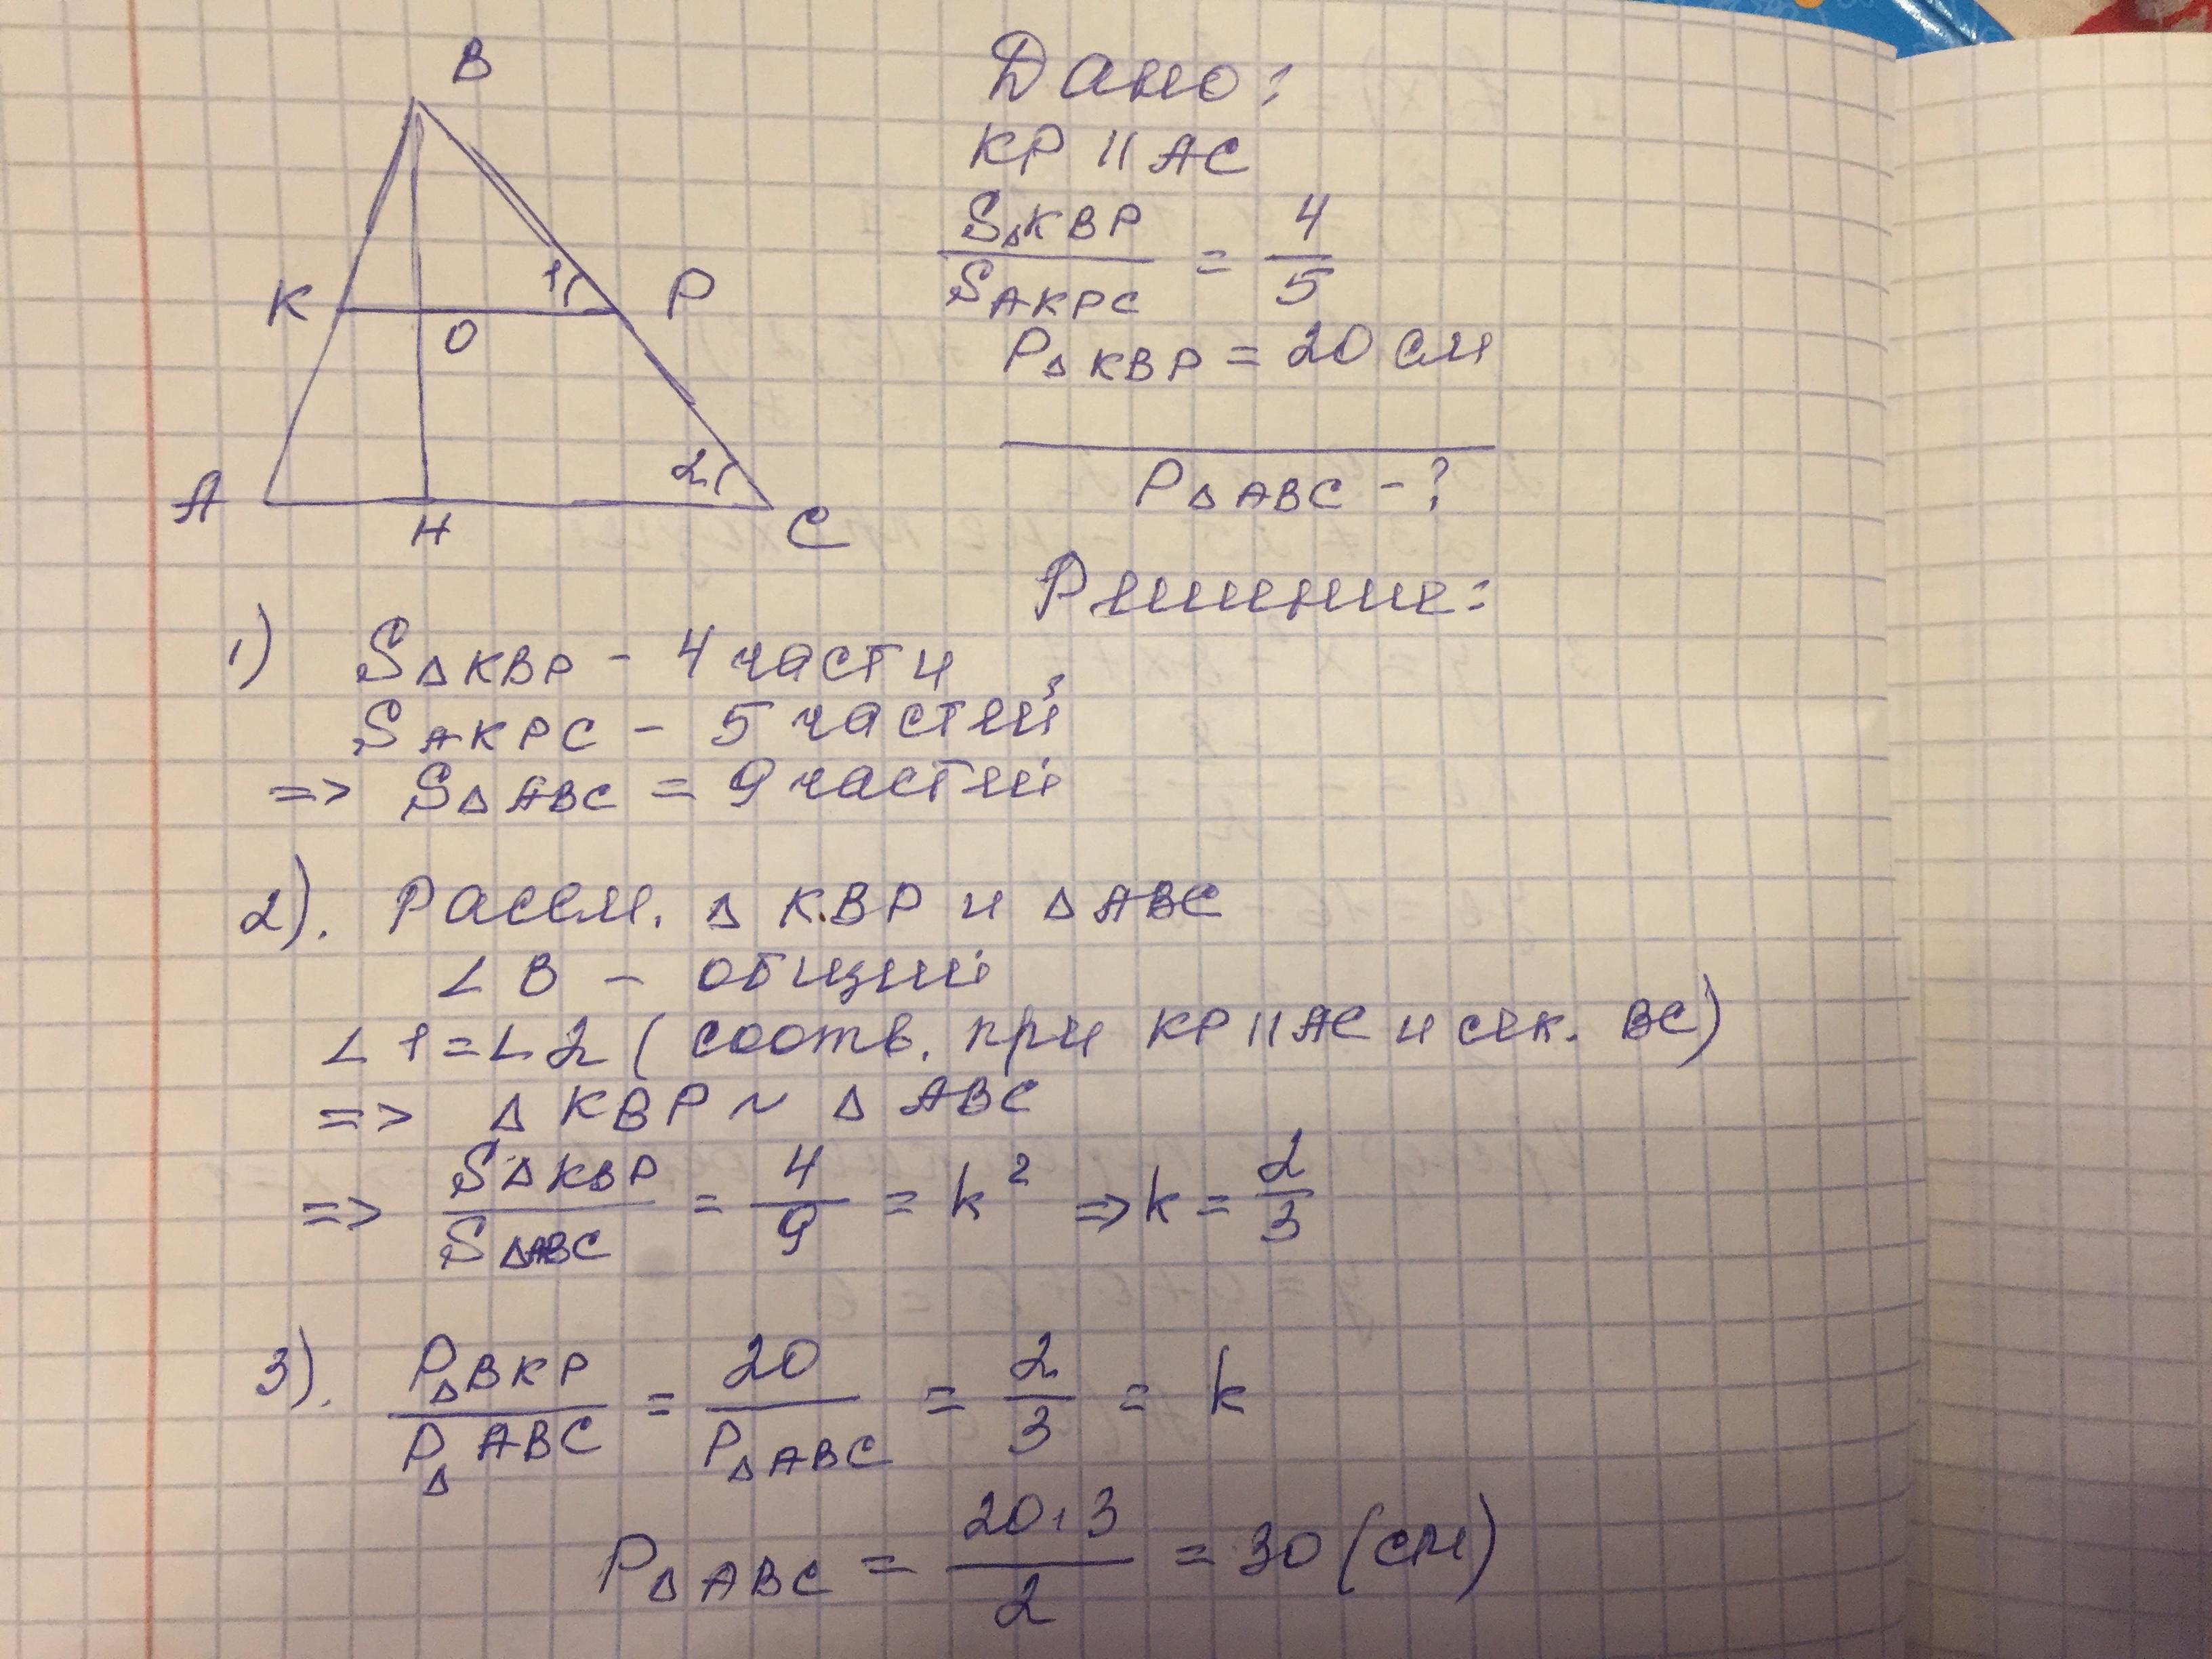 B
K
1
P
O
A
2
H
C
Дано:
KP || AC
S△KBP / SAKPC = 4/5
P△KBP = 20 см
P△ABC - ?
Решение:
1) S△KBP - 4 части,
SAKPC - 5 частей
=> S△ABC = 9 частей
2). Рассм. △ KBP и △ ABC
∠ B - общий
∠ 1 = ∠ 2 ( соотв. при KP || AC и сек. BC)
=> △ KBP ~ △ ABC
=> S△KBP / S△ABC = 4/9 = k² => k = 2/3
3). P△BKP / P△ABC = 20 / P△ABC = 2/3 = k
P△ABC = 20·3 / 2 = 30 (см)